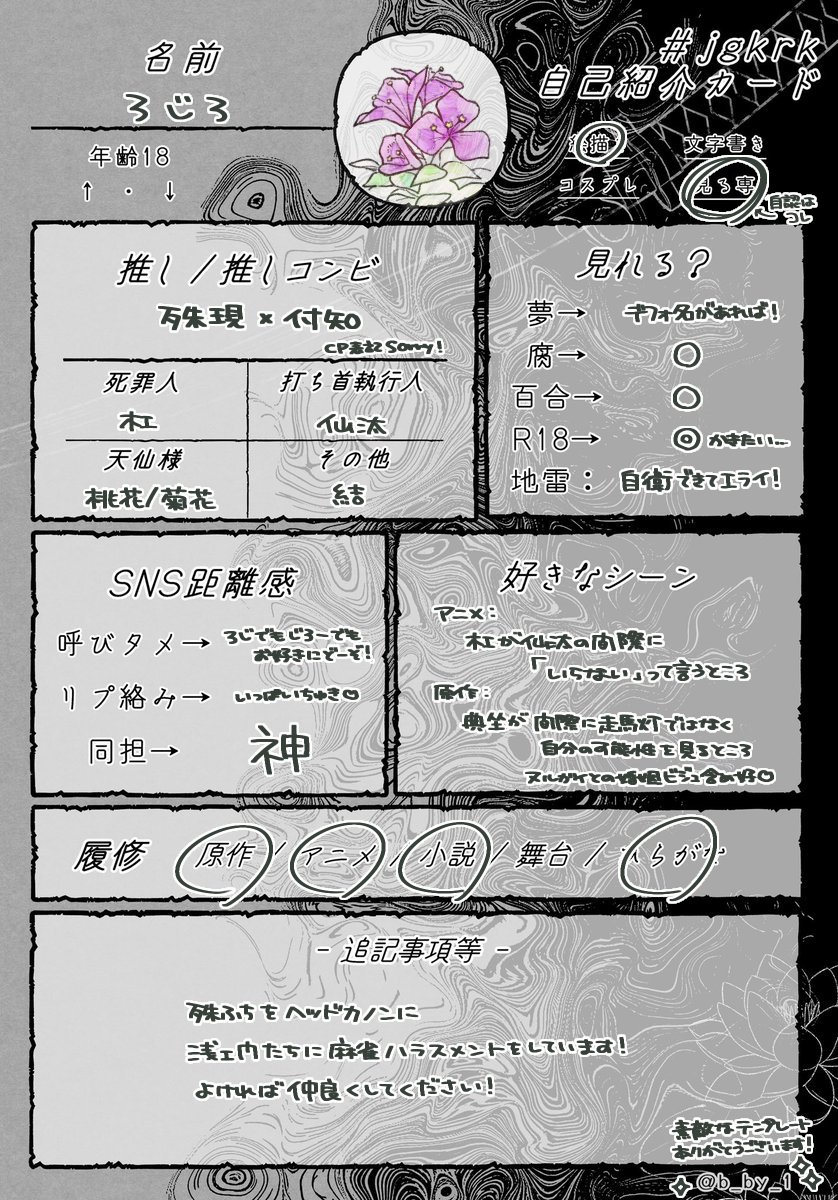 #jgkrk
自己紹介カード
名前
ろじろ
年齢18
↑ ・ ↓
絵描き
文字書き
コスプレ
見る専
自認は
コレ
推し/推しコンビ
殊現×付知
CP表記Sorry!
死罪人
打ち首執行人
杠
仙汰
天仙様
その他
桃花/菊花
結
見れる?
夢→ ギフォ名があれば!
腐→ ○
百合→ ○
R18→ ◎ かきたい…
地雷: 自衛できてエライ!
SNS距離感
呼びタメ→ ろじでもじろーでも
お好きにどーぞ!
リプ絡み→ いっぱいちゅき♡
同担→ 神
好きなシーン
アニメ:
杠が仙汰の間際に
「いらない」って言うところ
原作:
典坐が間際に走馬灯ではなく
自分の可能性を見るところ
ヌルガイとの婚姻ビジュ含め好♡
履修 原作 / アニメ / 小説 / 舞台 / ひらがな
- 追記事項等 -
殊ふちをヘッドカノンに
浅ェ門たちに麻雀ハラスメントをしています!
よければ仲良くしてください!
素敵なテンプレート
ありがとうございます!
@b_by_1